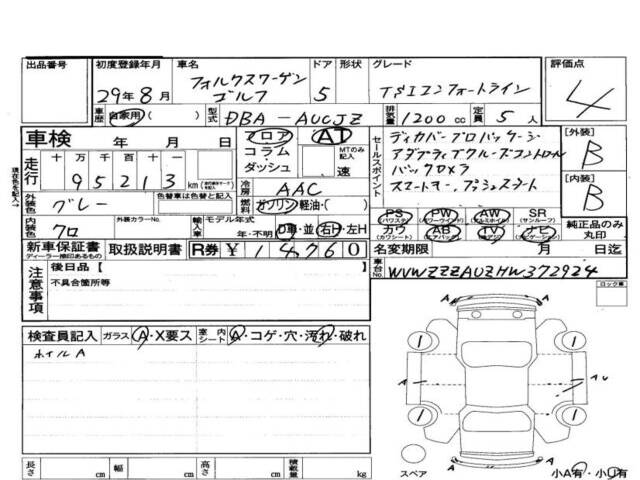 出品番号 初度登録年月 車名 ドア 形状 グレード 評価点
29年8月 フォルクスワーゲン ゴルフ 5 TSIコンフォートライン 4
車歴 自家用 ( ) 型式 DBA-AUCJZ 排気量 1200cc 定員 5人
車検 年 月 日 フロア AT セールスポイント ディカバープロパッケージ [外装] B
コラム・ダッシュ MTのみ記入 速 アダプティブクルーズコントロール
走行 十 万 千 百 十 一 バックカメラ
95213 km 冷房 AAC スマートキー、プッシュスタート [内装] B
現在色を記入→ 外装色 グレー 色替車は色替と記入 燃料 ガソリン・軽油・( )
PS (パワステ) PW (パワーウインド) AW (アルミホイル) SR (サンルーフ)
内装色 クロ 外装カラーNo. 輸入車 モデル年式 年・不明 D車・並 右H・左H カワ (カワシート) AB (エアバック) TV (テレビ) ナビ 純正品のみ丸印
新車保証書 ディーラー捺印あるもの 取扱説明書 R券 ¥14760 名変期限 月 日迄
車台No. WVWZZZAUZHW372924
注意事項 後日品【
不具合箇所等
ロック車
検査員記入 ガラス A・X要ス 室内シート A・コゲ・穴・汚れ・破れ
ホイルA
A A A A A U
1 1 1 1
スペア
長さ cm 幅 cm 高さ cm 積載量 kg 小A有・小U有